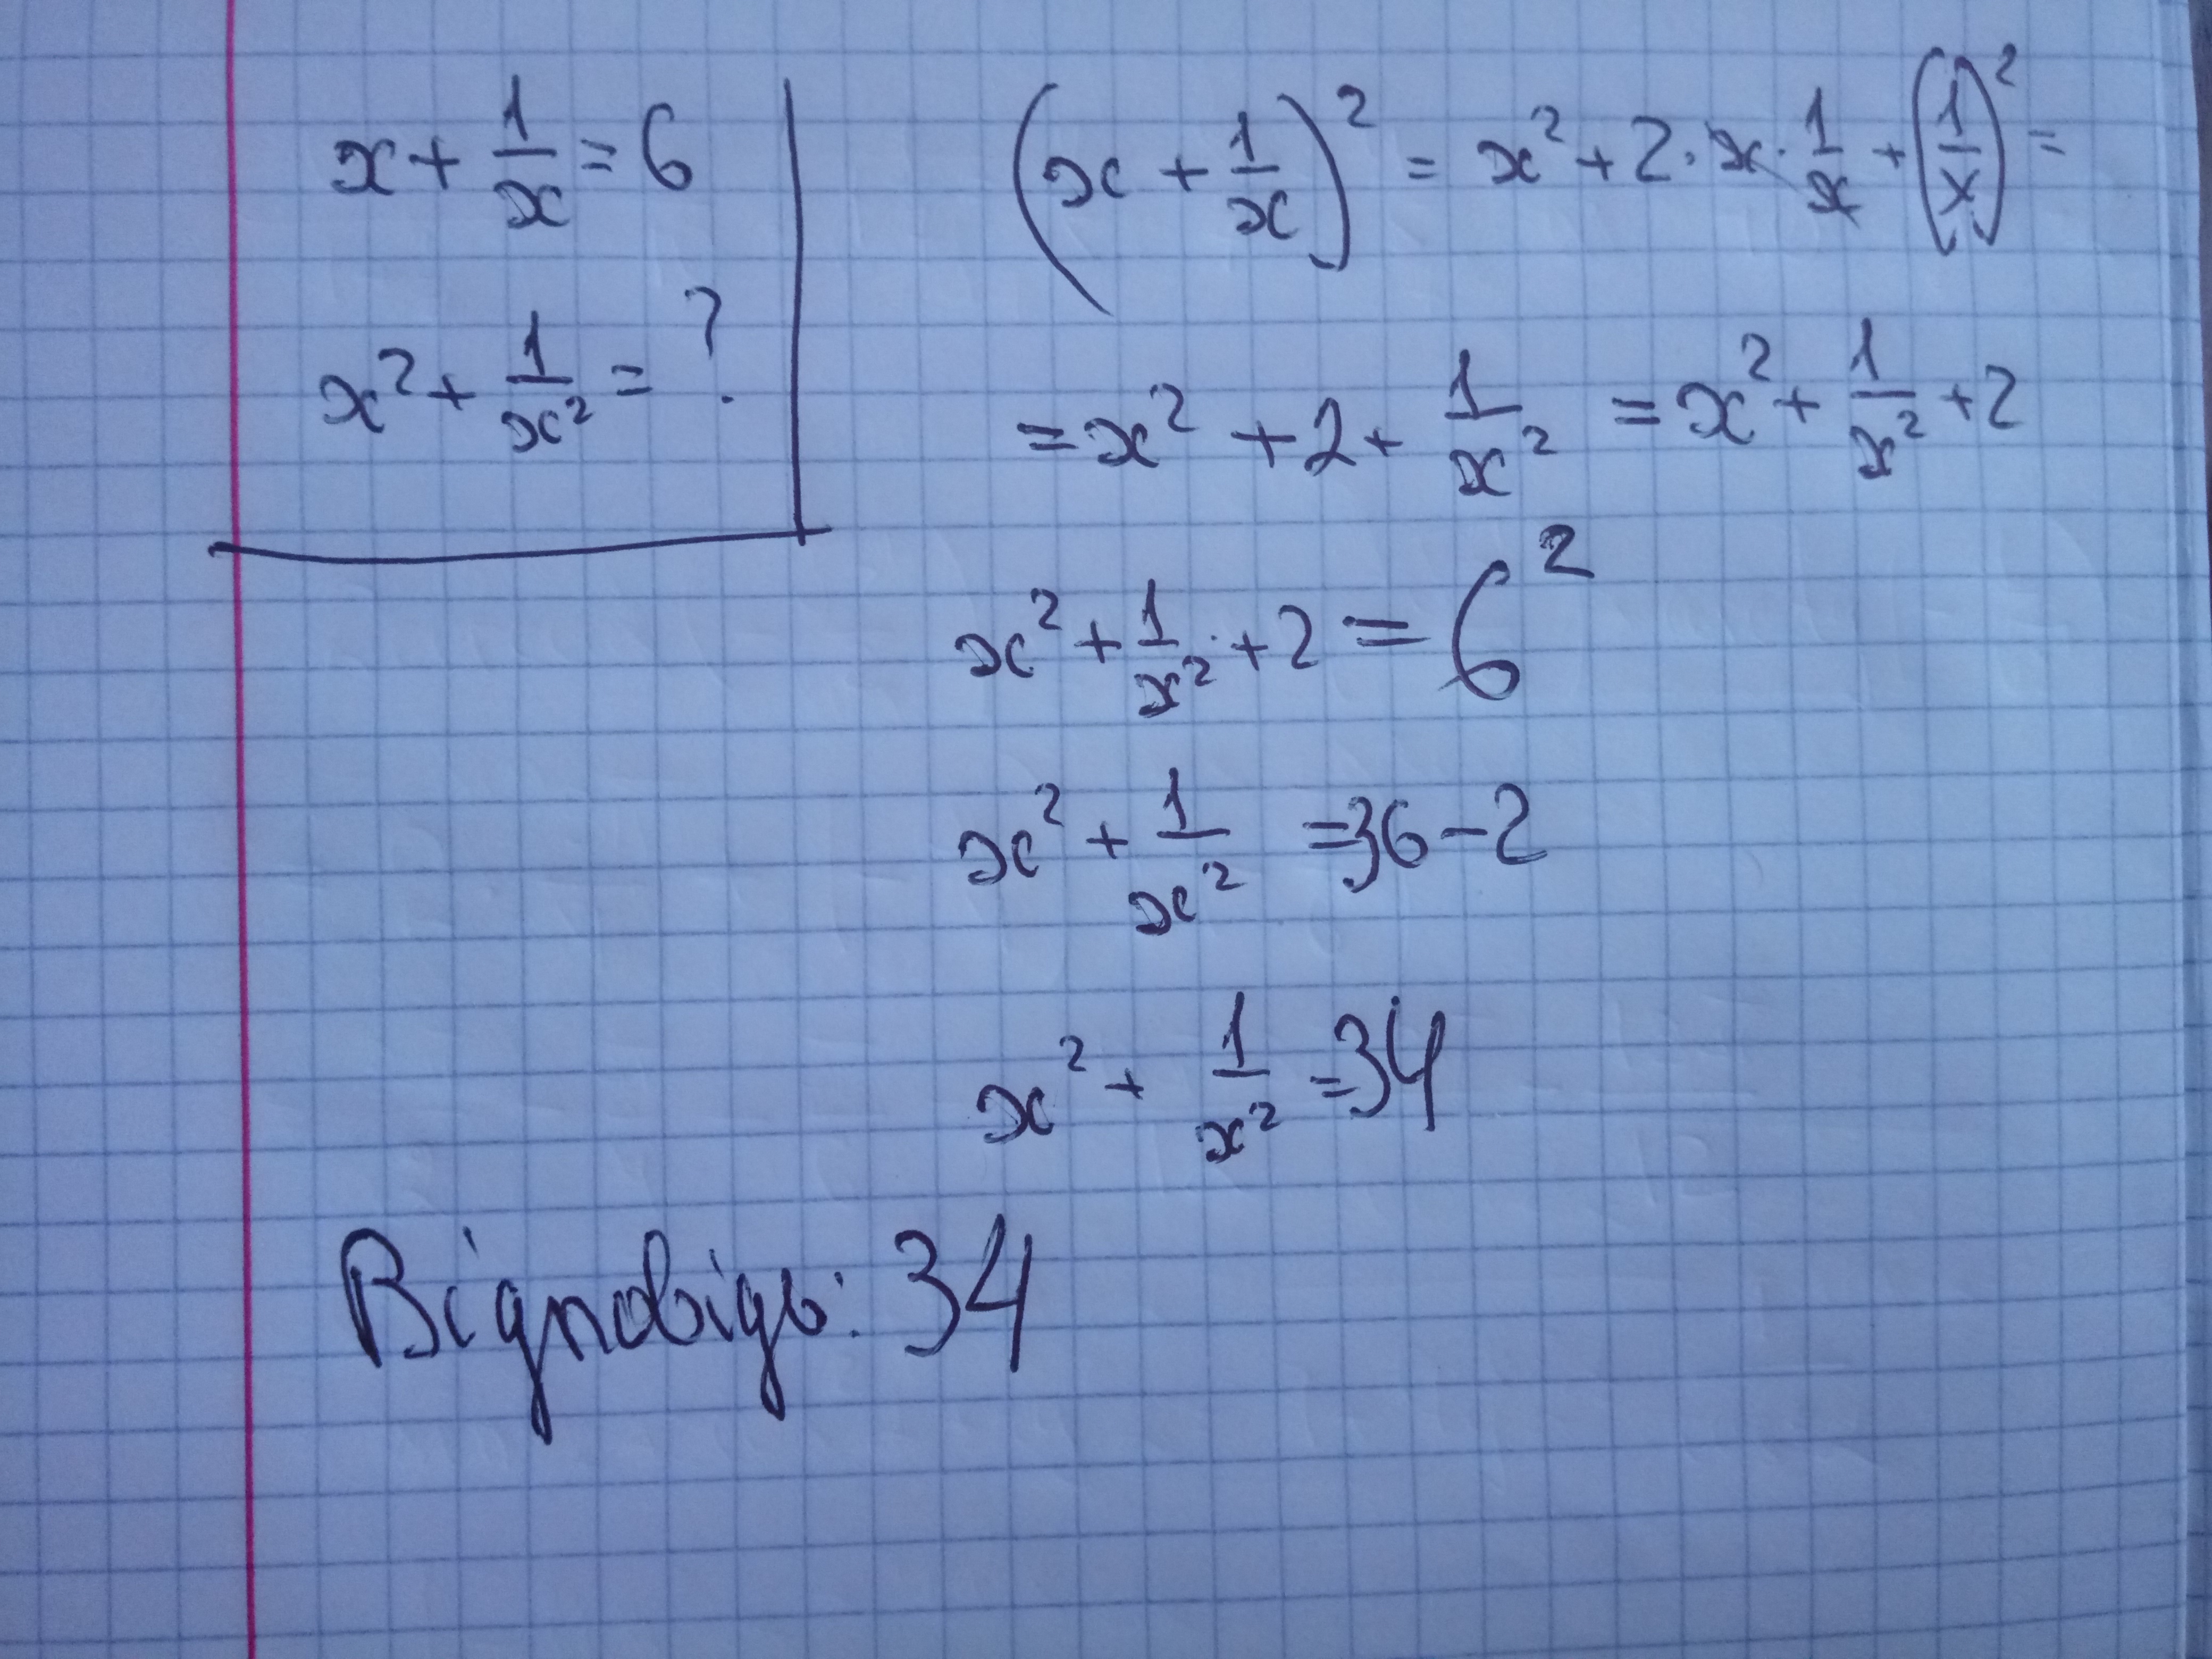 x + 1/x = 6
x² + 1/x² = ?
(x + 1/x)² = x² + 2 · x · 1/x + (1/x)² =
= x² + 2 + 1/x² = x² + 1/x² + 2
x² + 1/x² + 2 = 6²
x² + 1/x² = 36 - 2
x² + 1/x² = 34
Відповідь: 34